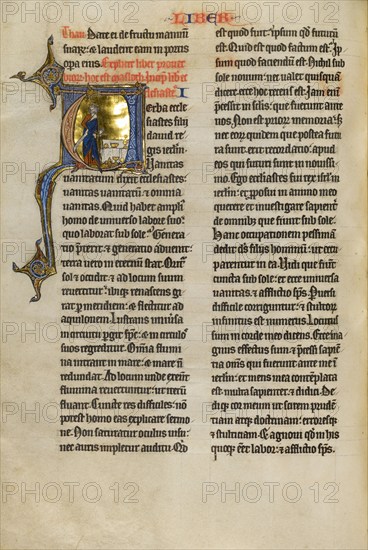 LIBER
Thau Date ei de fructu manuū
suaꝝ: ⁊ laudent eam in portis
opa eius. Explicit liber prouer
bioꝝ hoc est masloth. Incip̄ lib ec
clesiastes. I
Verba eccle
siastes filii
dauid re
gis ierlm̄.
Vanitas
uanitatum dixit ecclesiastes:
uanitas uanitatū ⁊ omnia
uanitas. Quid habet ampli
homo de uniuerso labore suo
quo laborat sub sole? Genera
tio p̄terit: ⁊ generatio aduenit:
terra uero in eternū stat. Oritur
sol ⁊ occidit: ⁊ ad locum suum
reuertitur: ibiq; renascens gi
rat p meridiem: ⁊ flectitur ad
aquilonem. Lustrans uniūsa
in circuitu pergit sp̄c: ⁊ in circulos
suos regreditur. Omnia flumi
na intrant in mare: ⁊ mare n̄
redundat. Ad locum unde exeūt
flumina reuertuntur: ut iterū
fluant. Cuncte res difficiles: nō
potest homo eas explicare sermo
ne. Non saturatur oculus uisu:
nec auris impletur auditu. Qd̄
est quod fuit: ipsum qd̄ futurū
est. Quid est quod factum est? Ip
sum quod faciendū est. Nichil sub
sole nouum: nec ualet quisquā
dicere: ecce hoc recens est. Iam enī
p̄cessit in sclis: que fuerunt ante
nos. Non est prior memoria:
nec eoꝝ quidem que postea futu
ra sunt: erit recordatio apud
eos qui futuri sunt in nouissi
mo. Ego ecclesiastes fui rex isrl̄
in ierlm̄: ⁊ proposui in animo meo
querere ⁊ inuestigare sapienter
de omnibȝ que fiunt sub sole.
Hanc occupationem pessimā
dedit ds̄ filiis hominū: ut occu
parentur in ea. Uidi que fiūt
cuncta sub sole: et ecce uniuersa
uanitas: ⁊ afflictio sp̄s. Puersi
difficile corriguntur: ⁊ stultoꝝ
infinitus est numerus. Locutus
sum in corde meo dicens. Ecce ma
gnus effectus sum: ⁊ p̄cessi sapien
tia om̄s qui fuerunt ante me ī
ierlm̄: et mens mea contēplata
est multa sapienter: ⁊ didici. De
diq; cor meum ut scirem prudē
tiam atq; doctrinam: erroresq;
⁊ stultitiam. Et agnoui qd̄ in his
quoq; eēt labor: ⁊ afflictio sp̄s.
PHOTO12